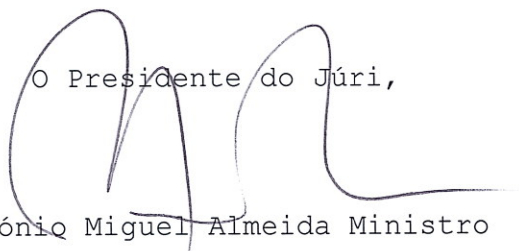 O Presidente do Júri,
ónio Miguel Almeida Ministro